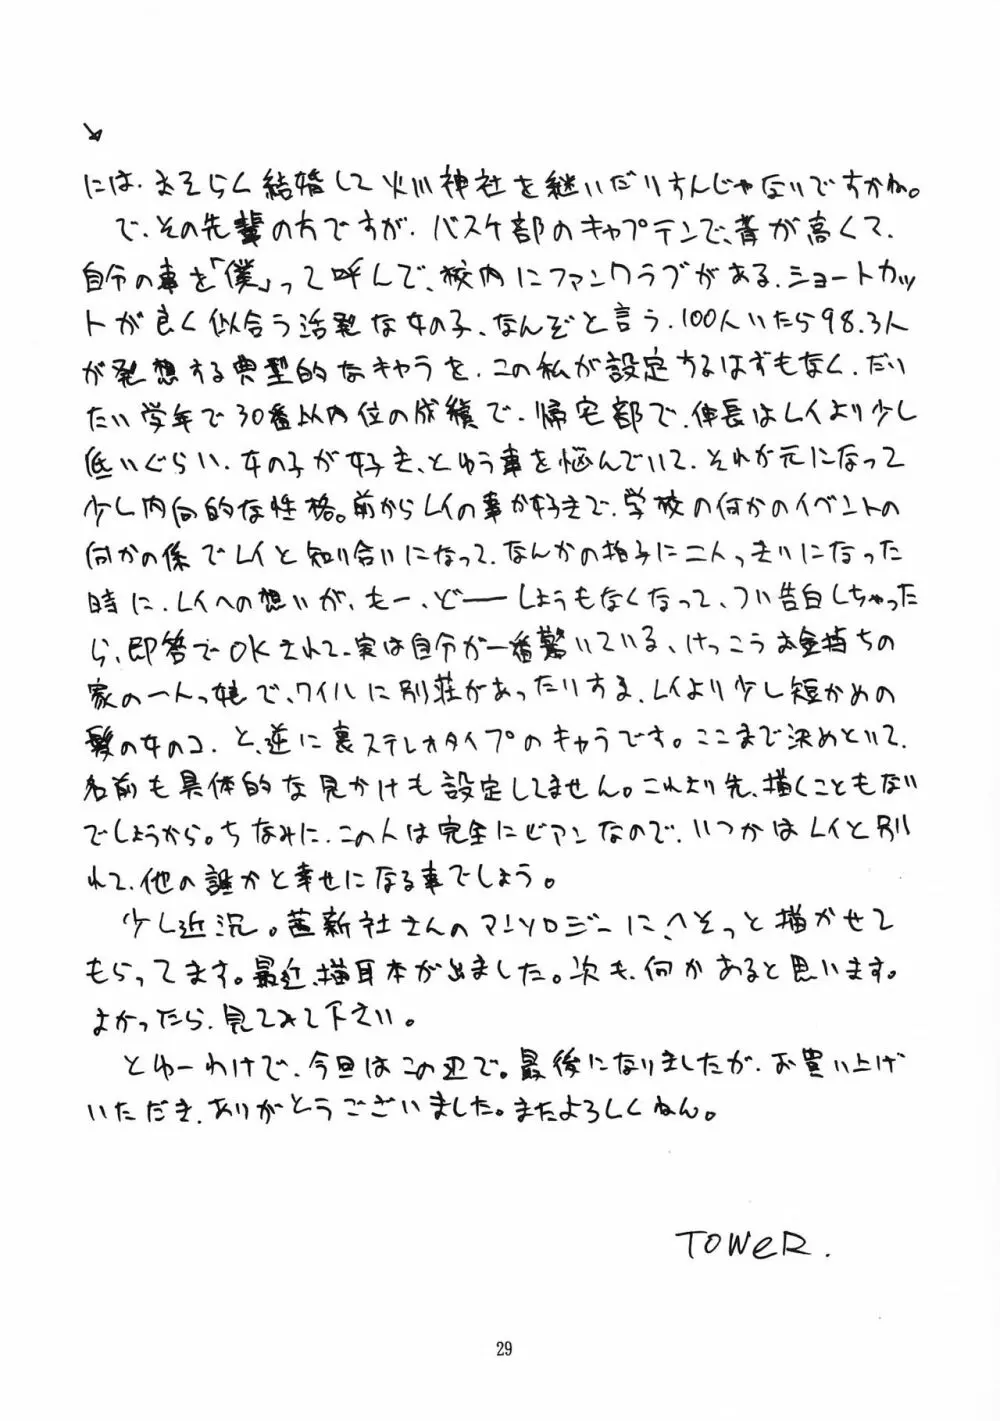 には、おそらく結婚して火川神社を継いだりすんじゃないですかね。
で、その先輩の方ですが、バスケ部のキャプテンで、背が高くて、
自分の事を「僕」って呼んで、校内にファンクラブがある、ショートカッ
トが良く似合う活発な女の子、なんぞと言う、100人いたら98.3人
が発想する典型的なキャラを、この私が設定するはずもなく、だい
たい学年で30番以内位の成績で、帰宅部で、伸長はレイより少し
低いぐらい、女の子が好き、とゆう事を悩んでいて、それが元になって
少し内向的な性格。前からレイの事が好きで、学校の何かのイベントの
何かの係でレイと知り合いになって、なんかの拍子に二人っきりになった
時に、レイへの想いが、もー、どーーしようもなくなって、つい告白しちゃった
ら、即答でOKされて、実は自分が一番驚いている、けっこうお金持ちの
家の一人っ娘で、ワイハに別荘があったりする、レイより少し短かめの
髪の女のコ、と、逆に裏ステレオタイプのキャラです。ここまで決めといて、
名前も具体的な見かけも設定してません。これより先、描くこともない
でしょうから。ちなみに、この人は完全にビアンなので、いつかはレイと別
れて、他の誰かと幸せになる事でしょう。
少し近況。茜新社さんのアンソロジーに、へそっと描かせて
もらってます。最近、描耳本が出ました。次も、何かあると思います。
よかったら、見てみて下さい。
とゆーわけで、今回はこの辺で。最後になりましたが、お買い上げ
いただき、ありがとうございました。またよろしくねん。
TOWER.
29